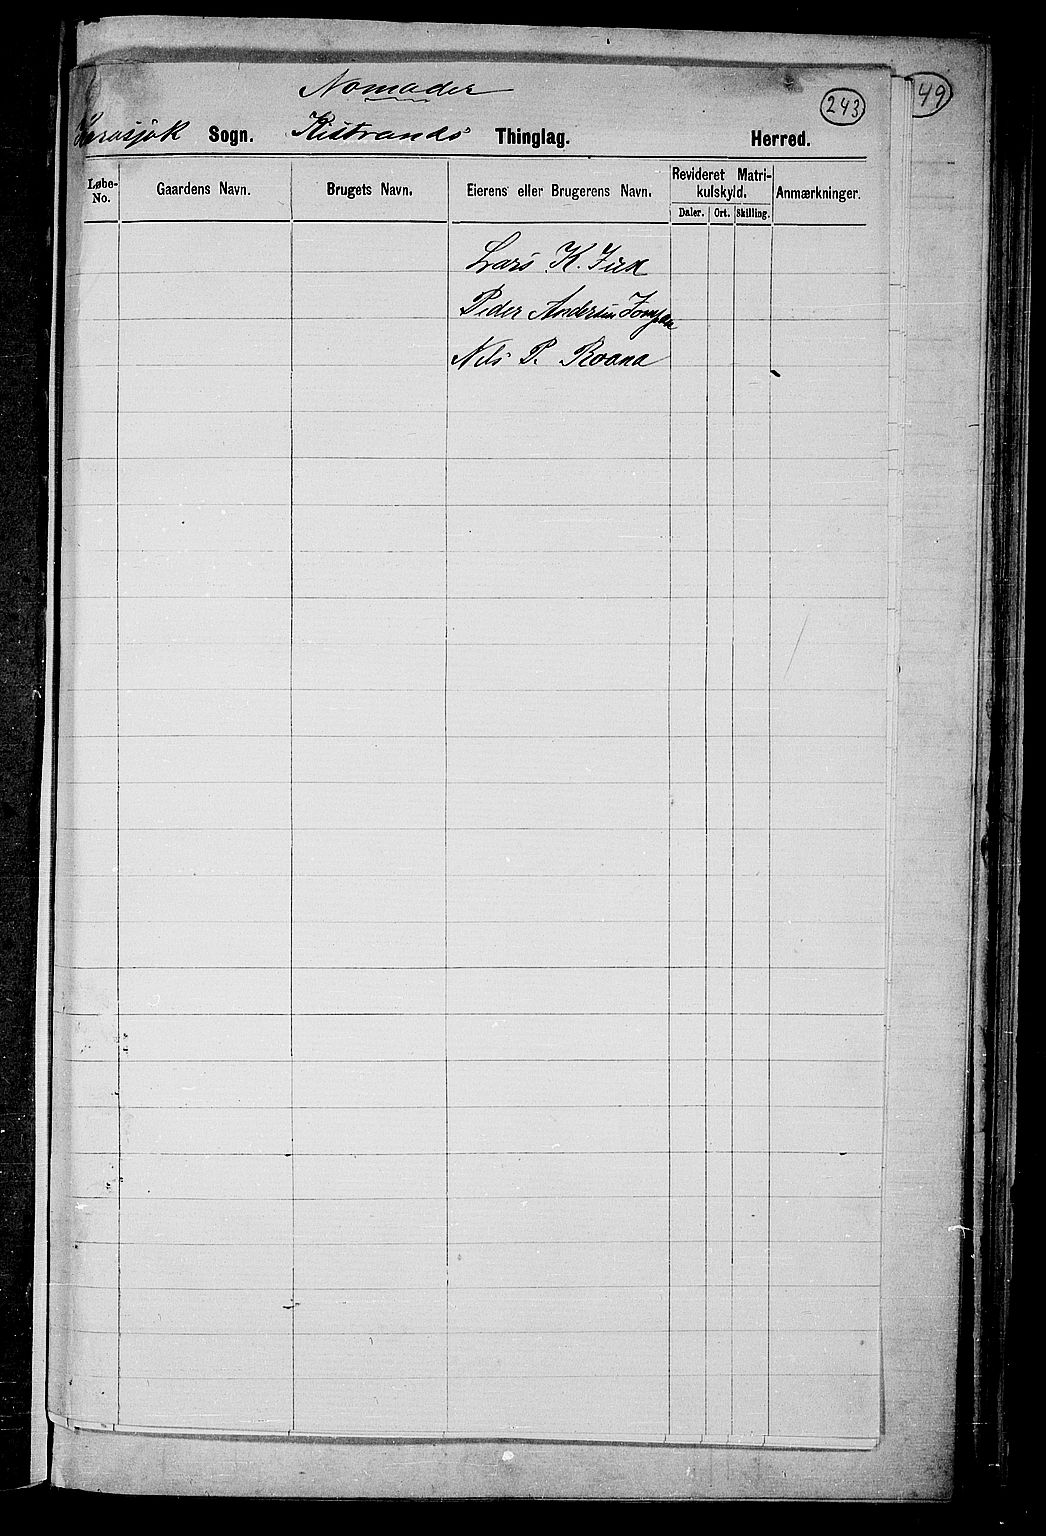 Nomader
243
49
Karasjok Sogn. Kistrands Thinglag. Herred.
Løbe-No. Gaardens Navn. Brugets Navn. Eierens eller Brugerens Navn. Revideret Matrikulskyld. Anmærkninger.
Daler. Ort. Skilling.
Lars K.
Peder Andersen
Nils P.